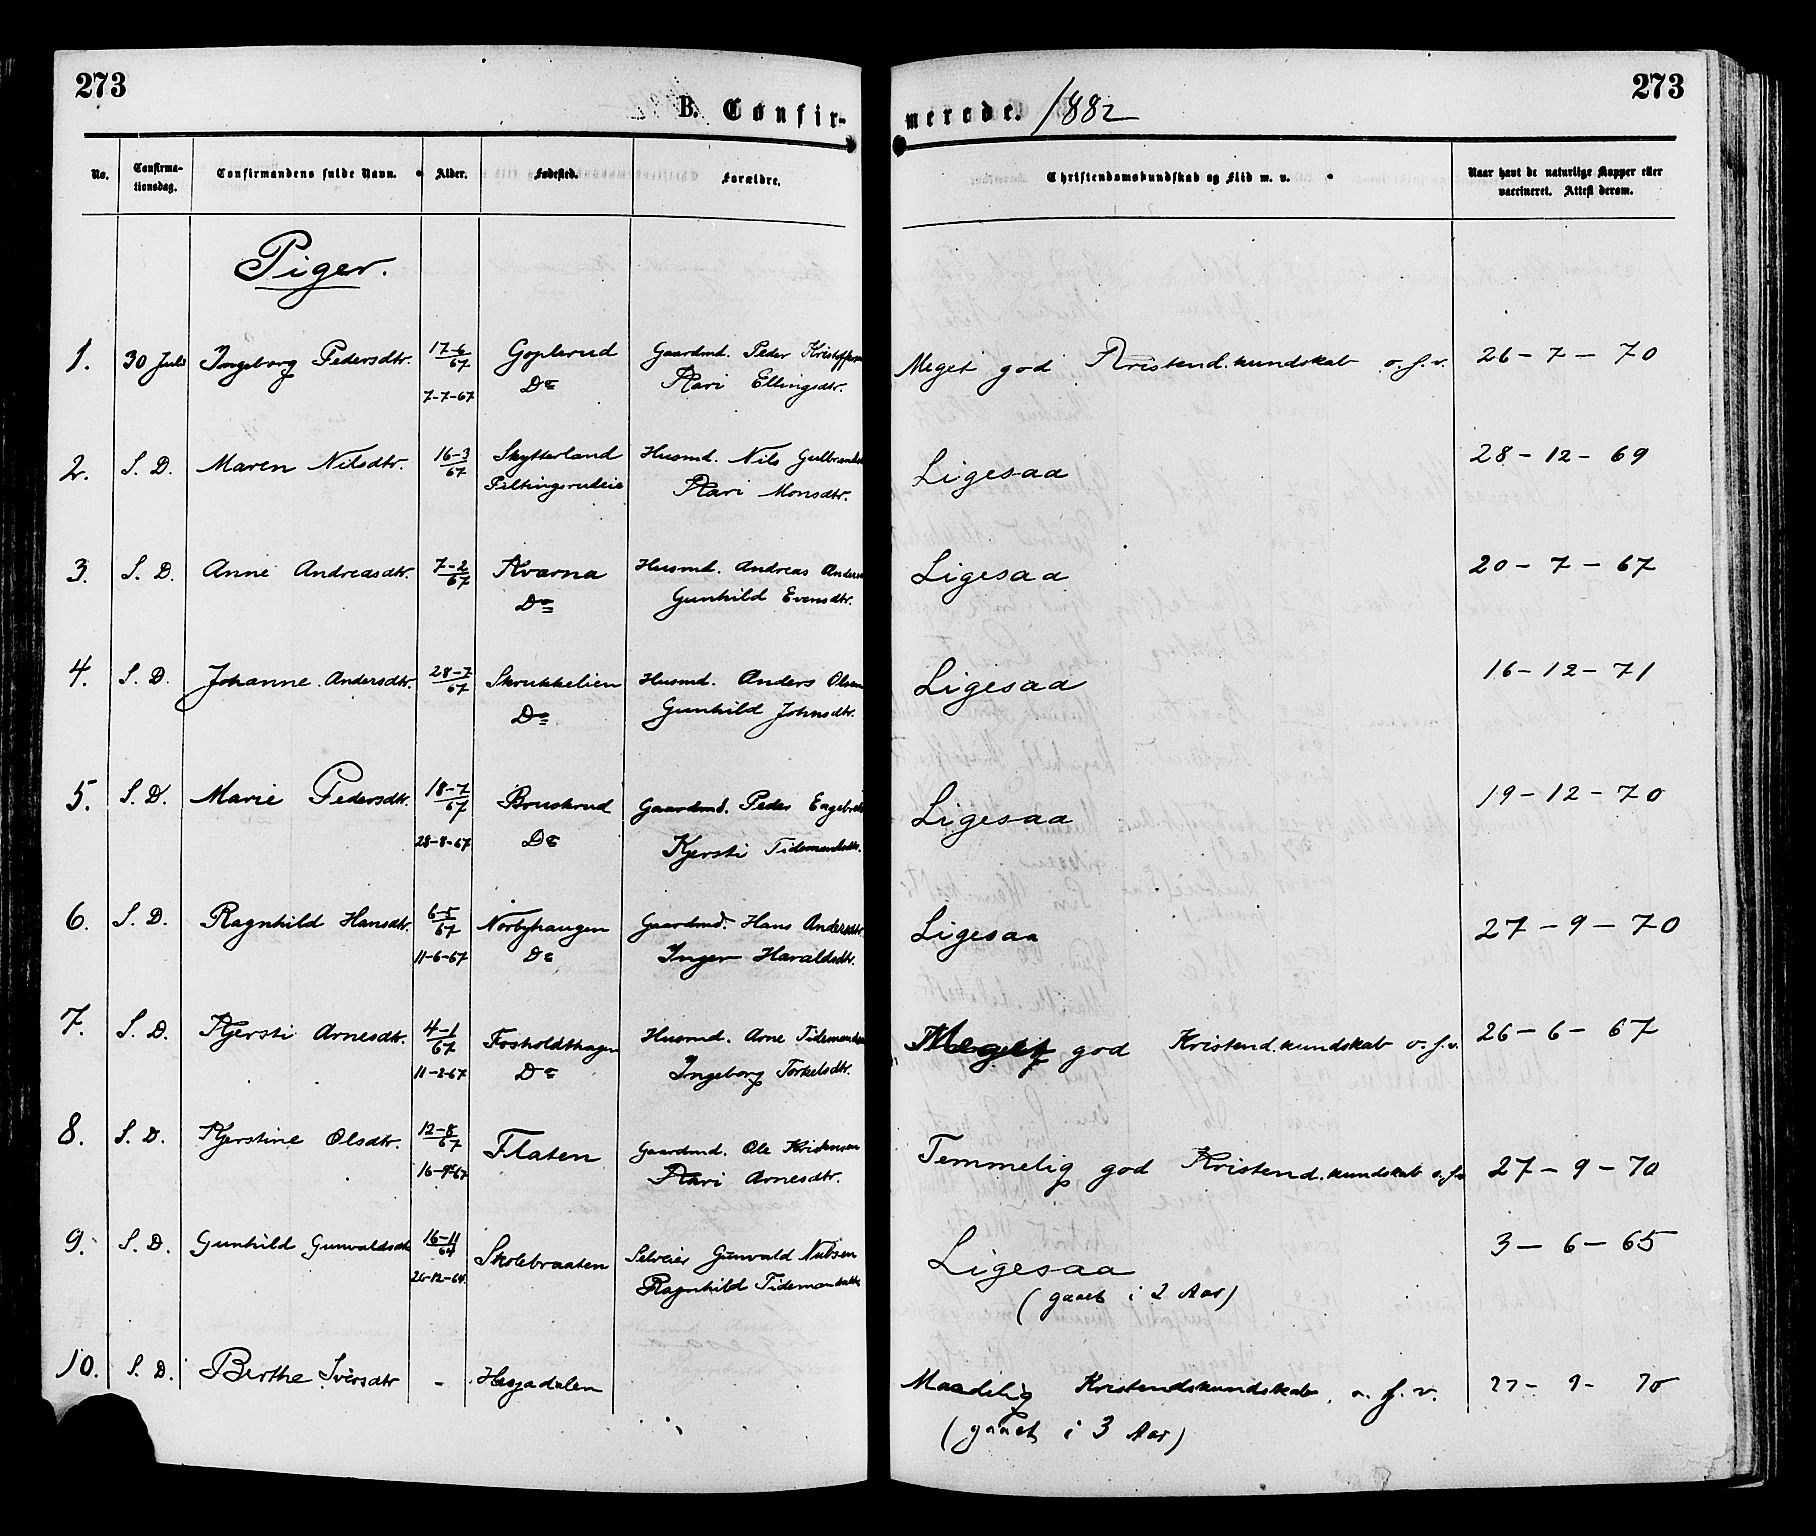 273
B. Confir-
merede. 1882
273
No.
Confirma-
tionsdag.
Confirmandens fulde Navn.
Alder.
Fødested.
Forældre.
Christendomskundskab og Flid m. v.
Naar havt de naturlige Kopper eller
vaccineret. Attest derom.
Piger.
1. 30 Juli Ingeborg Pedersdtr. 17-6/67 Goplerud Gaardmd. Peder Kristoffersen Meget god Kristend.kundskab o.f.v. 26-7-70
7-7-67 Do Kari Ellingsdtr.
2. S. D. Maren Nilsdtr. 16-3/67 Skytterland Husmd. Nils Gulbrandsen Ligesaa 28-12-69
Feltingsrudeie Kari Monsdtr.
3. S. D. Anne Andreasdtr. 7-2/67 Kværna Husmd. Andreas Andersen Ligesaa 20-7-67
Do Gunhild Evensdtr.
4. S. D. Johanne Andersdtr. 28-7/67 Skrukkelien Husmd. Anders Olsen Ligesaa 16-12-71
Do Gunhild Johnsdtr.
5. S. D. Marie Pedersdtr. 18-7/67 Bruskrud Gaardmd. Peder Engebrets Ligesaa 19-12-70
28-8-67 Do Kjersti Tidemandsdtr.
6. S. D. Ragnhild Hansdtr. 6-5/67 Norbyhaugen Gaardmd. Hans Andersdtr. Ligesaa 27-9-70
11-6-67 Do Inger Haraldsdtr.
7. S. D. Kjersti Arnesdtr. 4-1/67 Fosholdthagen Husmd. Arne Tidemandsen Meget god Kristend.kundskab o.f.v. 26-6-67
11-2-67 Do Ingeborg Torkelsdtr.
8. S. D. Kjerstine Olsdtr. 12-8/67 Flaten Gaardmd. Ole Kristensen Temmelig god Kristend.kundskab o.f.v. 27-9-70
16-9-67 Kari Arnesdtr.
9. S. D. Gunhild Gunvaldsdtr 16-11/64 Skolebraaten Selveier Gunvald Nilsen Ligesaa 3-6-65
26-12-64 Ragnhild Tidemandsdtr.
(gaaet i 2 Aar)
10. S. D. Berthe Iversdtr - Hesjadalen Maadelig Kristendskundskab o. f. v. 27-9-70
(gaaet i 3 Aar)